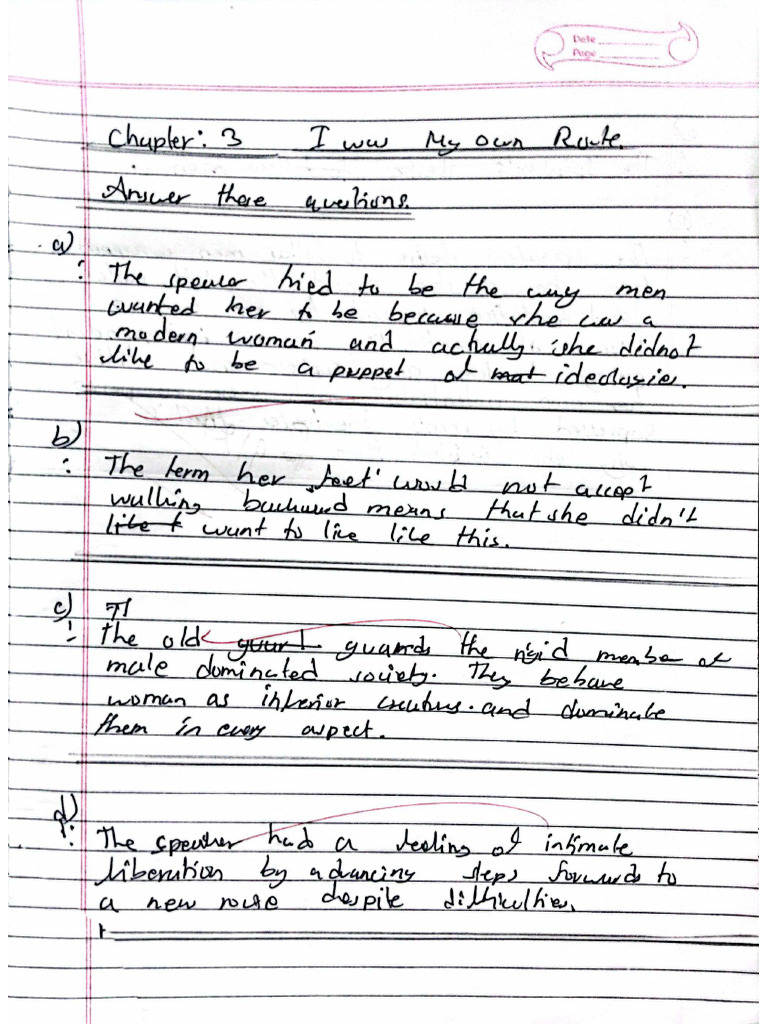 Date
Page
Chapter: 3 I was My Own Route.
Answer these questions.
a)
: The speaker tried to be the way men
wanted her to be because she was a
modern woman and actually she didnot
like to be a puppet of ideologies.
b)
: The term her feet would not accept
walking backward means that she didn't
like t want to live like this.
c)
: The old guards the rigid member of
male dominated society. They behave
woman as inferior creatures. and dominate
them in every aspect.
d)
: The speaker had a feeling of intimate
liberation by advancing steps forwards to
a new route despite difficulties.